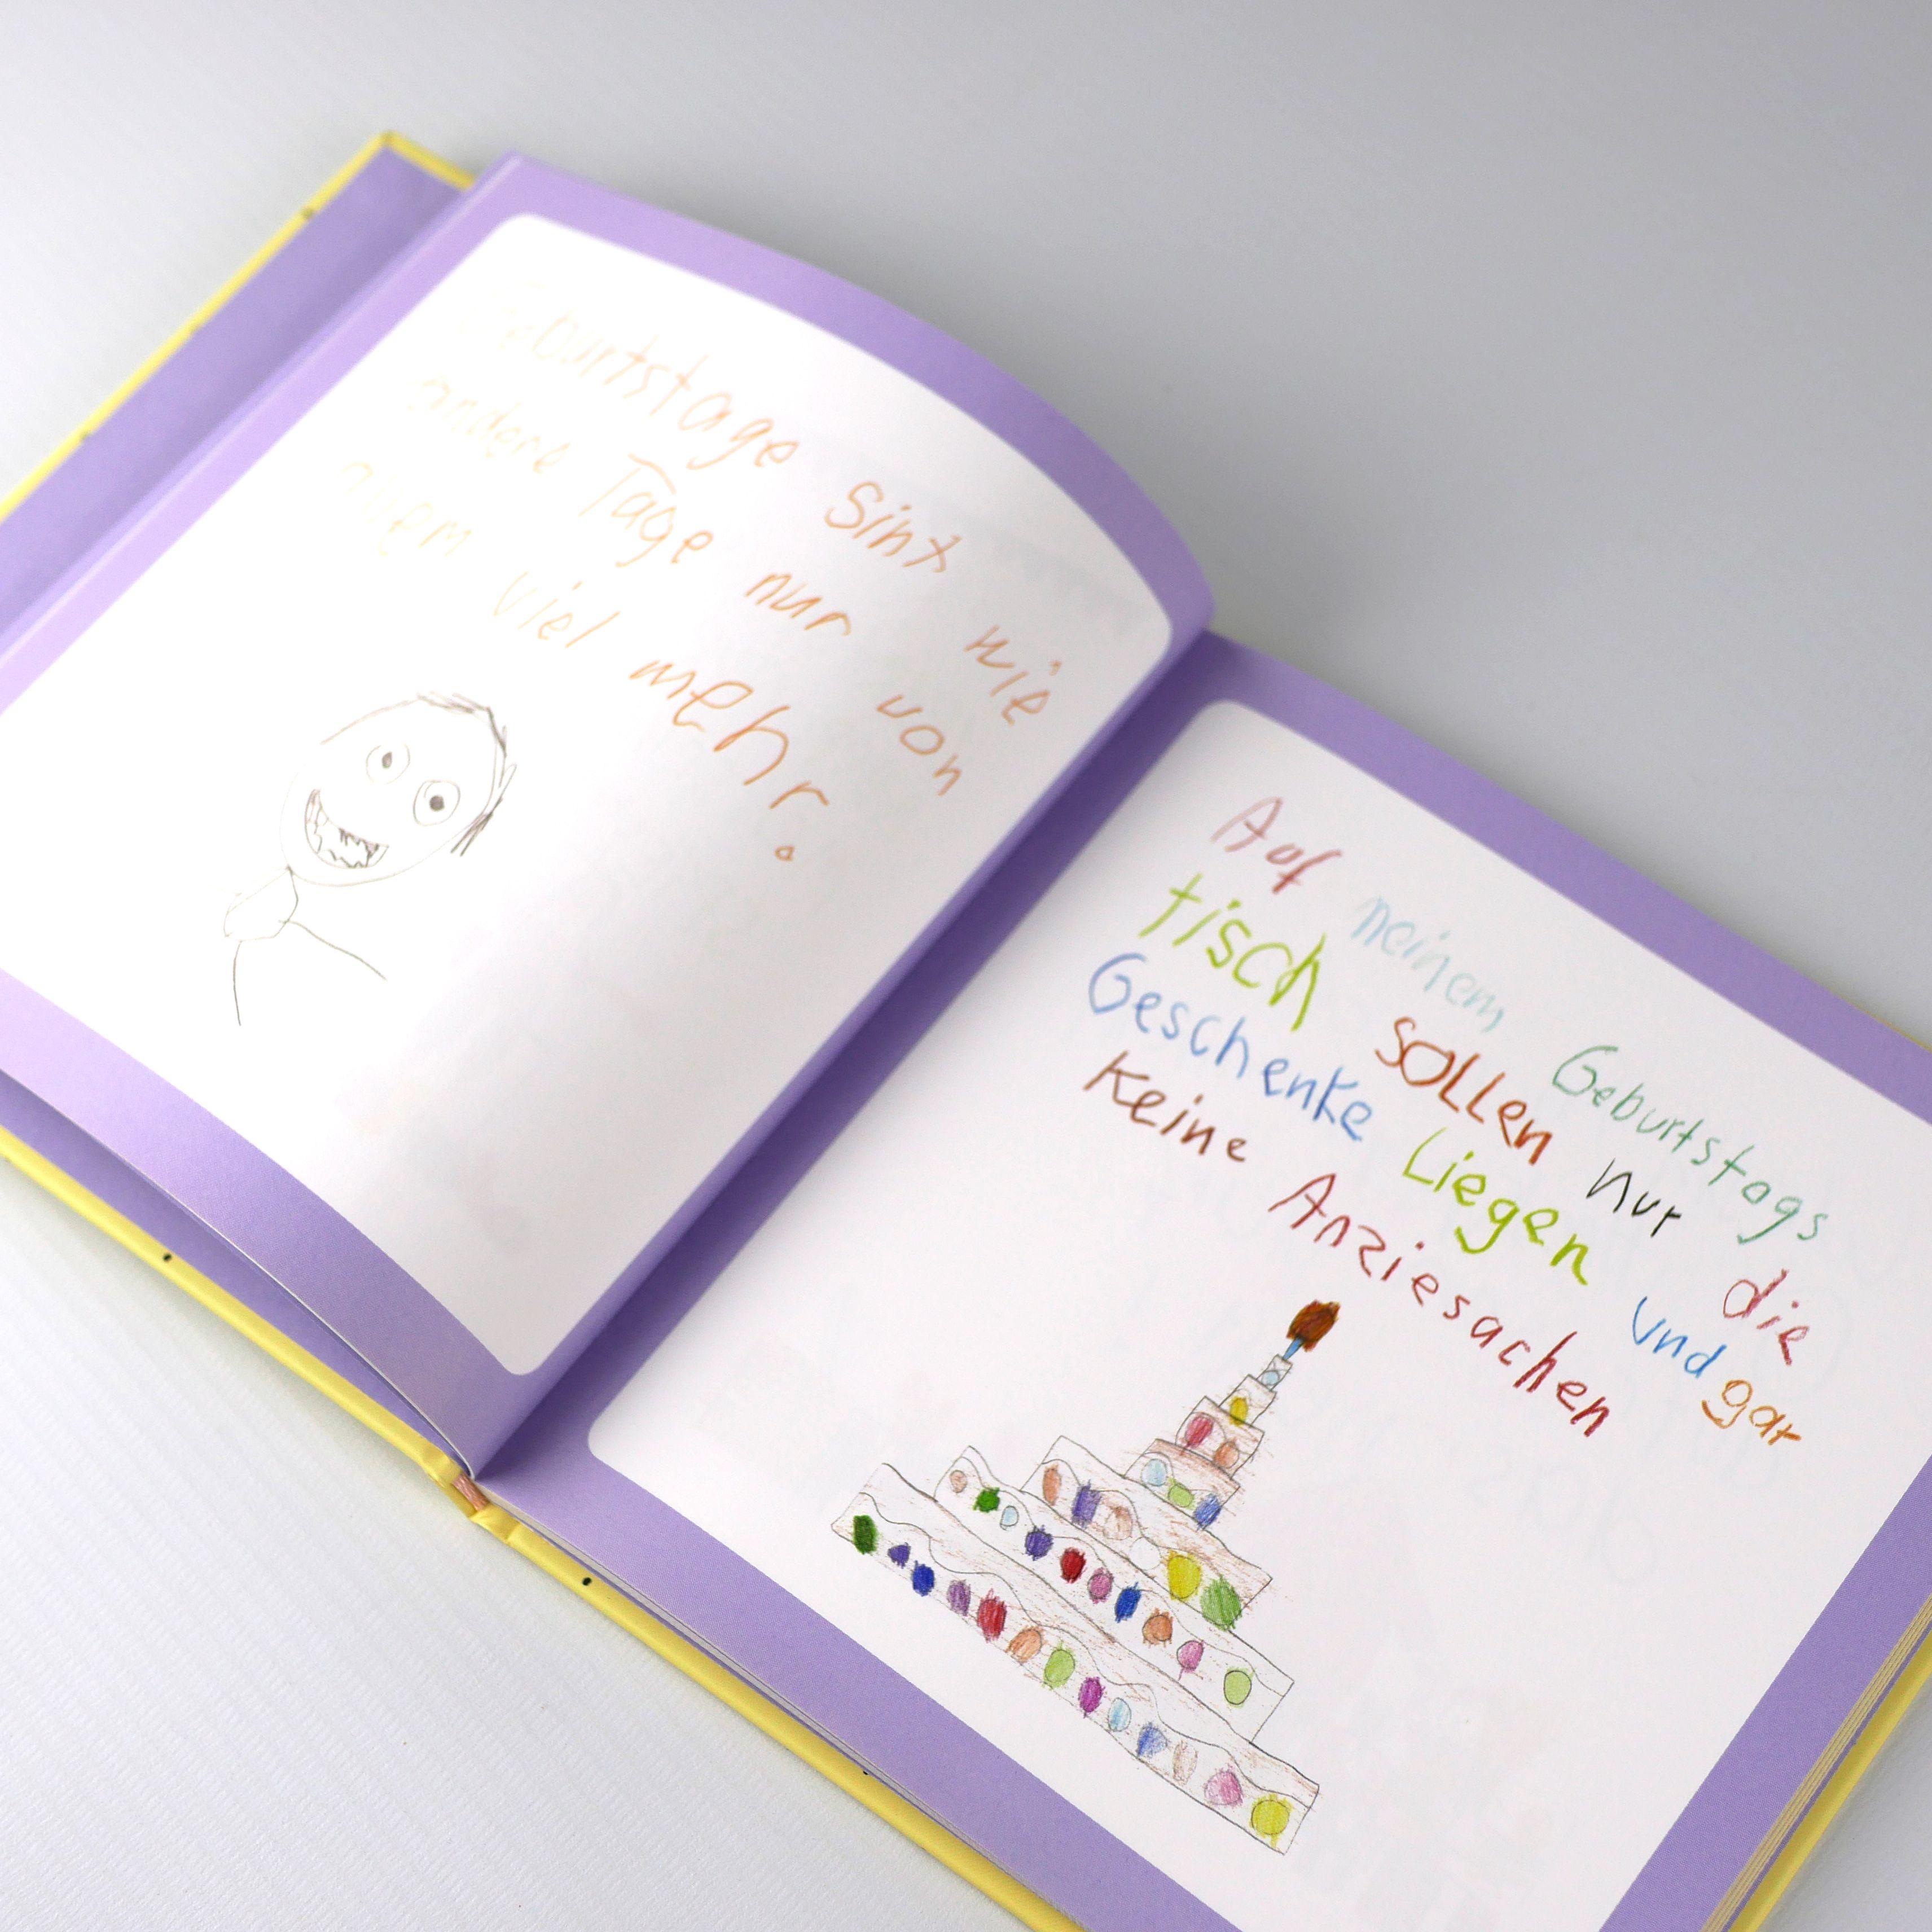 Geburtstage sint wie
andere Tage nur von
allem viel mehr.
Auf meinem Geburtstags
tisch soLLen nur die
Geschenke Liegen und gar
Keine Anziesachen